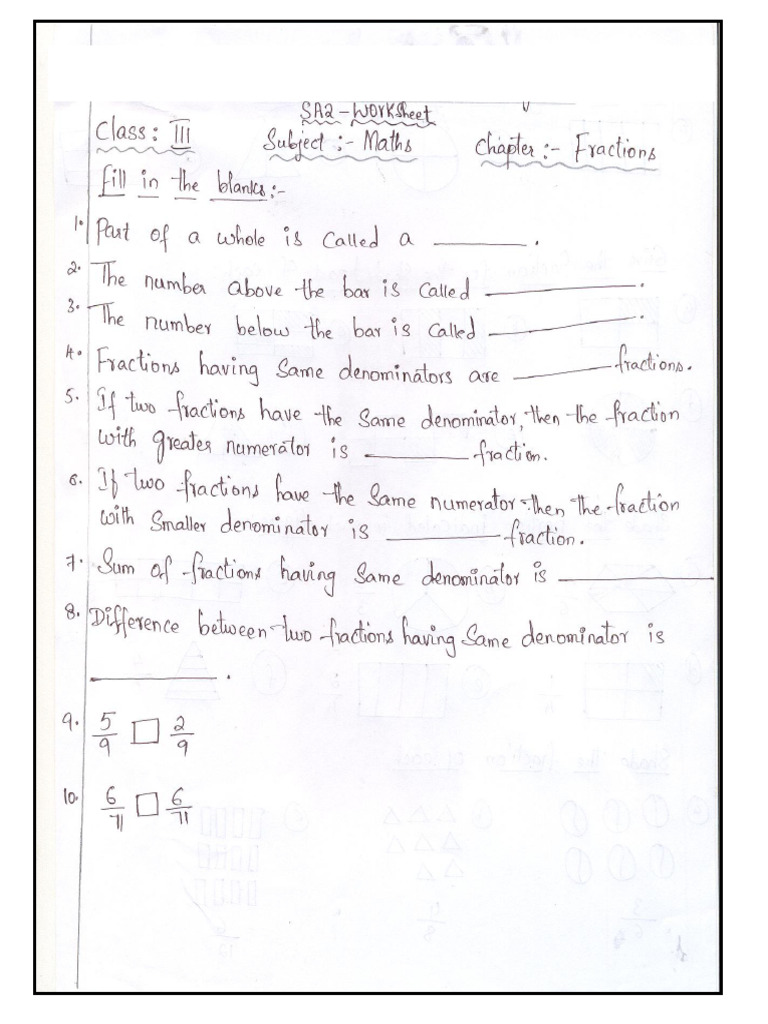 SA2-Worksheet
Class: III Subject:- Maths Chapter:- Fractions
Fill in the blanks:-
1. Part of a whole is called a ______.
2. The number above the bar is called ______.
3. The number below the bar is called ______.
4. Fractions having same denominators are ______ fractions.
5. If two fractions have the same denominator, then the fraction
with greater numerator is ______ fraction.
6. If two fractions have the same numerator then the fraction
with smaller denominator is ______ fraction.
7. Sum of fractions having same denominator is ______
8. Difference between two fractions having same denominator is
______.
9. 5/9 □ 2/9
10. 6/11 □ 6/11